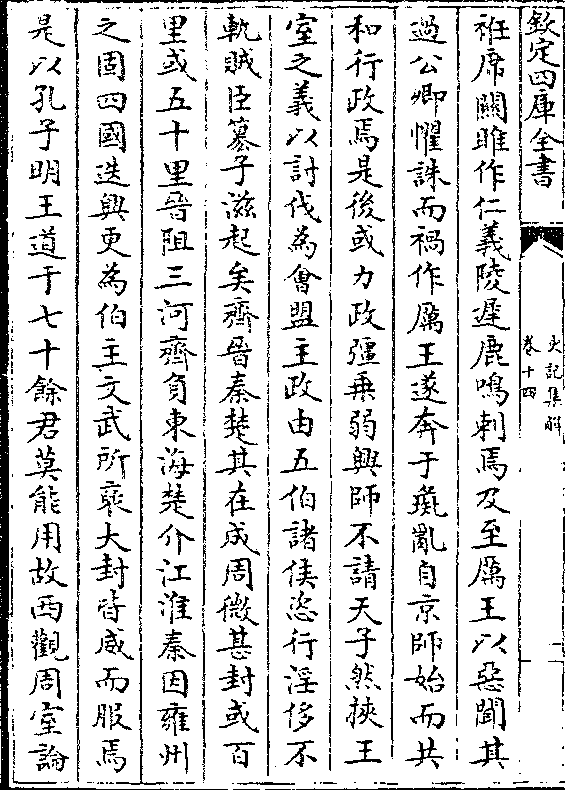 欽定四庫全書
史記集解
卷十四
二
袵席關雎作仁義陵遲鹿鳴刺焉及至厲王以惡聞其
過公卿懼誅而禍作厲王遂奔于彘亂自京師始而共
和行政焉是後或力政彊乗弱興師不請天子然挾王
室之義以討伐為會盟主政由五伯諸侯恣行淫侈不
軌賊臣簒子滋起矣齊晉秦楚其在成周微甚封或百
里或五十里晉阻三河齊負東海楚介江淮秦因雍州
之固四國迭興更為伯主文武所褒大封皆威而服焉
是以孔子明王道于七十餘君莫能用故西觀周室論